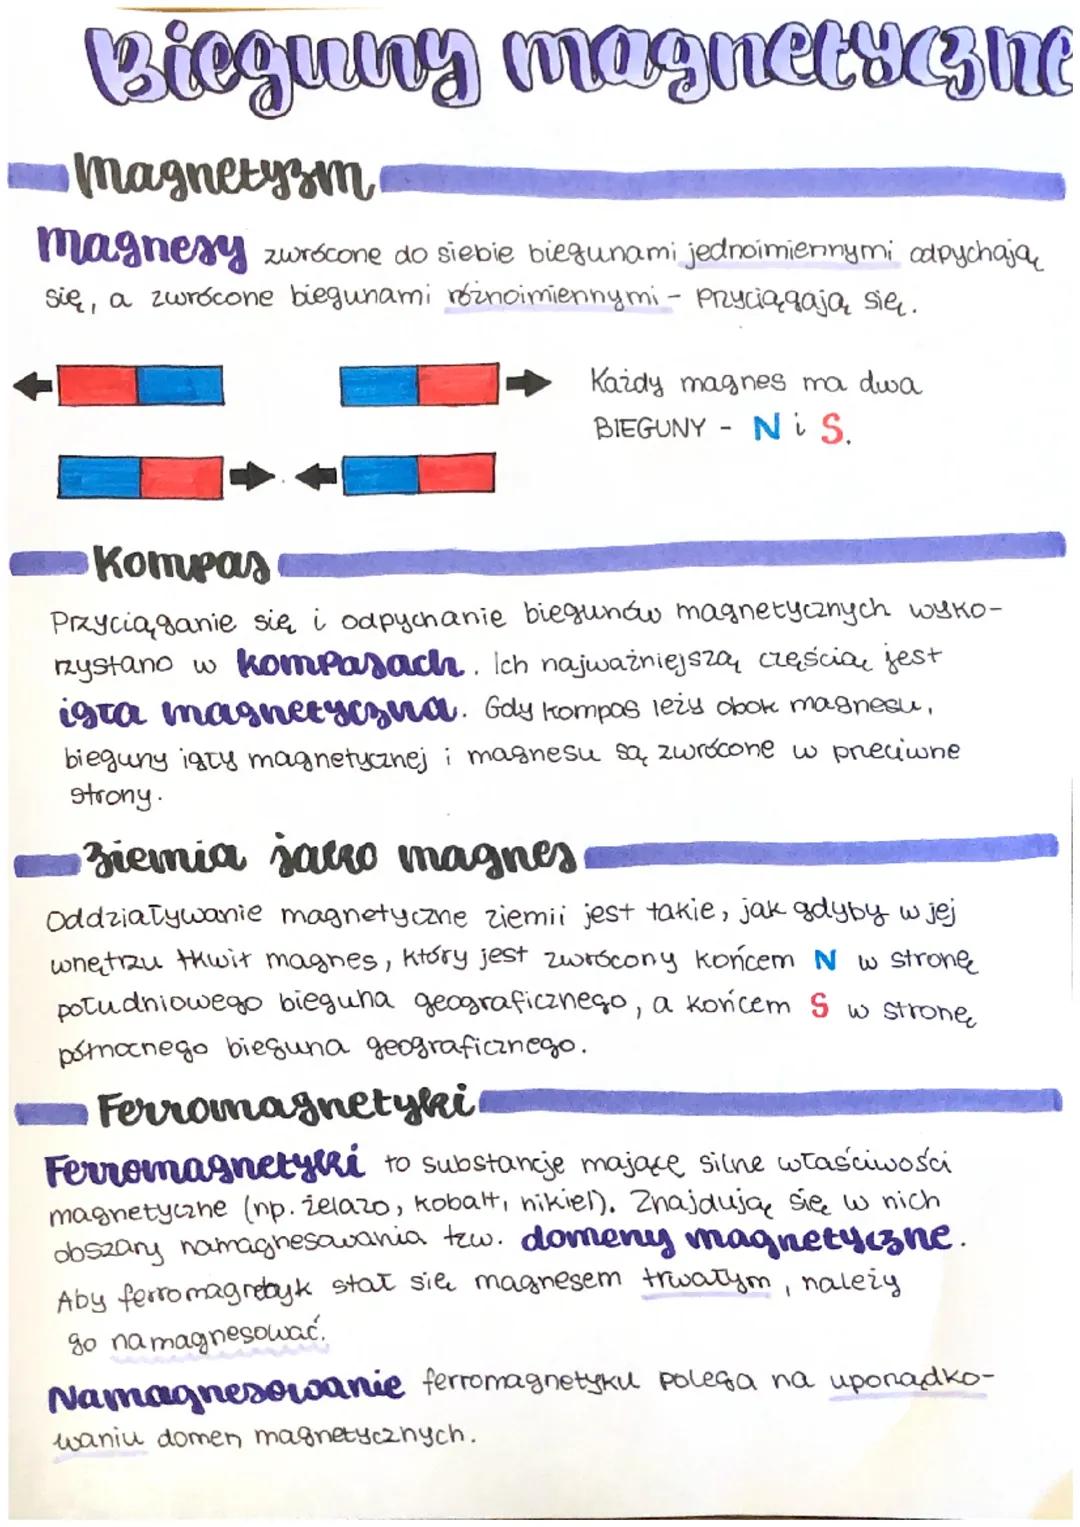 Bieguny magnetyczne
Magnetyzm
Magnesy zwrócone do siebie biegunami jednoimiennymi odpychają
się, a zwrócone biegunami różnoimiennymi - przyciągają się.
Każdy magnes ma dwa
BIEGUNY - N i S.
Kompas
Przyciąganie się i odpychanie biegunów magnetycznych wyko-
rzystano w kompasach. Ich najważniejszą częścią jest
igła magnetyczna. Gdy kompas leży obok magnesu,
bieguny igły magnetycznej i magnesu są zwrócone w przeciwne
strony.
Ziemia jako magnes
Oddziaływanie magnetyczne ziemii jest takie, jak gdyby w jej
wnętrzu tkwił magnes, który jest zwrócony końcem N w stronę
południowego bieguna geograficznego, a końcem S w stronę
północnego bieguna geograficznego.
Ferromagnetyki
Ferromagnetyki to substancje mające silne właściwości
magnetyczne (np. żelazo, kobalt, nikiel). Znajdują się w nich
obszary namagnesowania tzw. domeny magnetyczne.
Aby ferromagnetyk stał się magnesem trwałym, należy
go namagnesować.
Namagnesowanie ferromagnetyku polega na uporządko-
waniu domen magnetycznych.